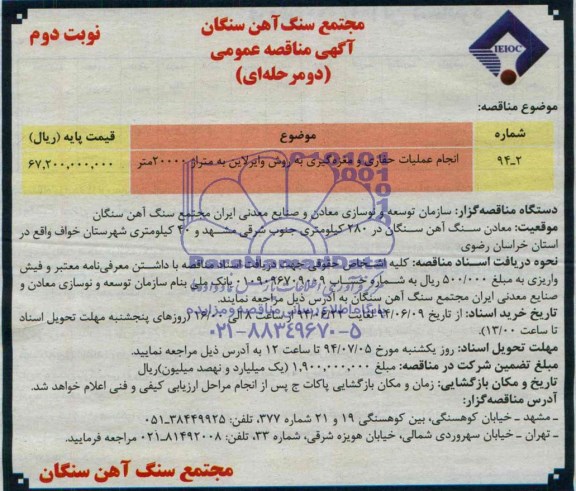 مجتمع سنگ آهن سنگان
آگهی مناقصه عمومی
(دو مرحله‌ای)
نوبت دوم
IEIOC
موضوع مناقصه:
شماره موضوع قیمت پایه (ریال)
۹۴-۲ انجام عملیات حفاری و مغزه‌گیری به روش وایرلاین به متراژ ۲۰۰۰۰متر ۶۷,۲۰۰,۰۰۰,۰۰۰
دستگاه مناقصه‌گزار: سازمان توسعه و نوسازی معادن و صنایع معدنی ایران مجتمع سنگ آهن سنگان
موقعیت: معادن سنگ آهن سنگان در ۲۸۰ کیلومتری جنوب شرقی مشهد و ۴۰ کیلومتری شهرستان خواف واقع در
استان خراسان رضوی
نحوه دریافت اسناد مناقصه: کلیه اشخاص حقوقی جهت دریافت اسناد مناقصه با داشتن معرفی‌نامه معتبر و فیش
واریزی به مبلغ ۵۰۰/۰۰۰ ریال به شماره حساب بانک ملی بنام سازمان توسعه و نوسازی معادن و
صنایع معدنی ایران مجتمع سنگ آهن سنگان به آدرس ذیل مراجعه نمایند.
تاریخ خرید اسناد: از تاریخ ۹۴/۰۶/۰۹ لغایت از ساعت ۸ الی ۱۶/۰۰ (روزهای پنجشنبه مهلت تحویل اسناد
تا ساعت ۱۳/۰۰)
۰۲۱-۸۸۳۴۹۶۷۰-۵
مهلت تحویل اسناد: روز یکشنبه مورخ ۹۴/۰۷/۰۵ تا ساعت ۱۲ به آدرس ذیل مراجعه نمایید.
مبلغ تضمین شرکت در مناقصه: مبلغ ۱,۹۰۰,۰۰۰,۰۰۰ (یک میلیارد و نهصد میلیون)ریال
تاریخ و مکان بازگشایی: زمان و مکان بازگشایی پاکات ج پس از انجام مراحل ارزیابی کیفی و فنی اعلام خواهد شد.
آدرس مناقصه‌گزار:
ـ مشهد ـ خیابان کوهسنگی، بین کوهسنگی ۱۹ و ۲۱ شماره ۳۷۷، تلفن: ۳۸۴۴۹۹۲۵-۰۵۱
ـ تهران ـ خیابان سهروردی شمالی، خیابان هویزه شرقی، شماره ۳۳، تلفن: ۸۱۴۹۲۰۰۸-۰۲۱ مراجعه فرمایید.
مجتمع سنگ آهن سنگان